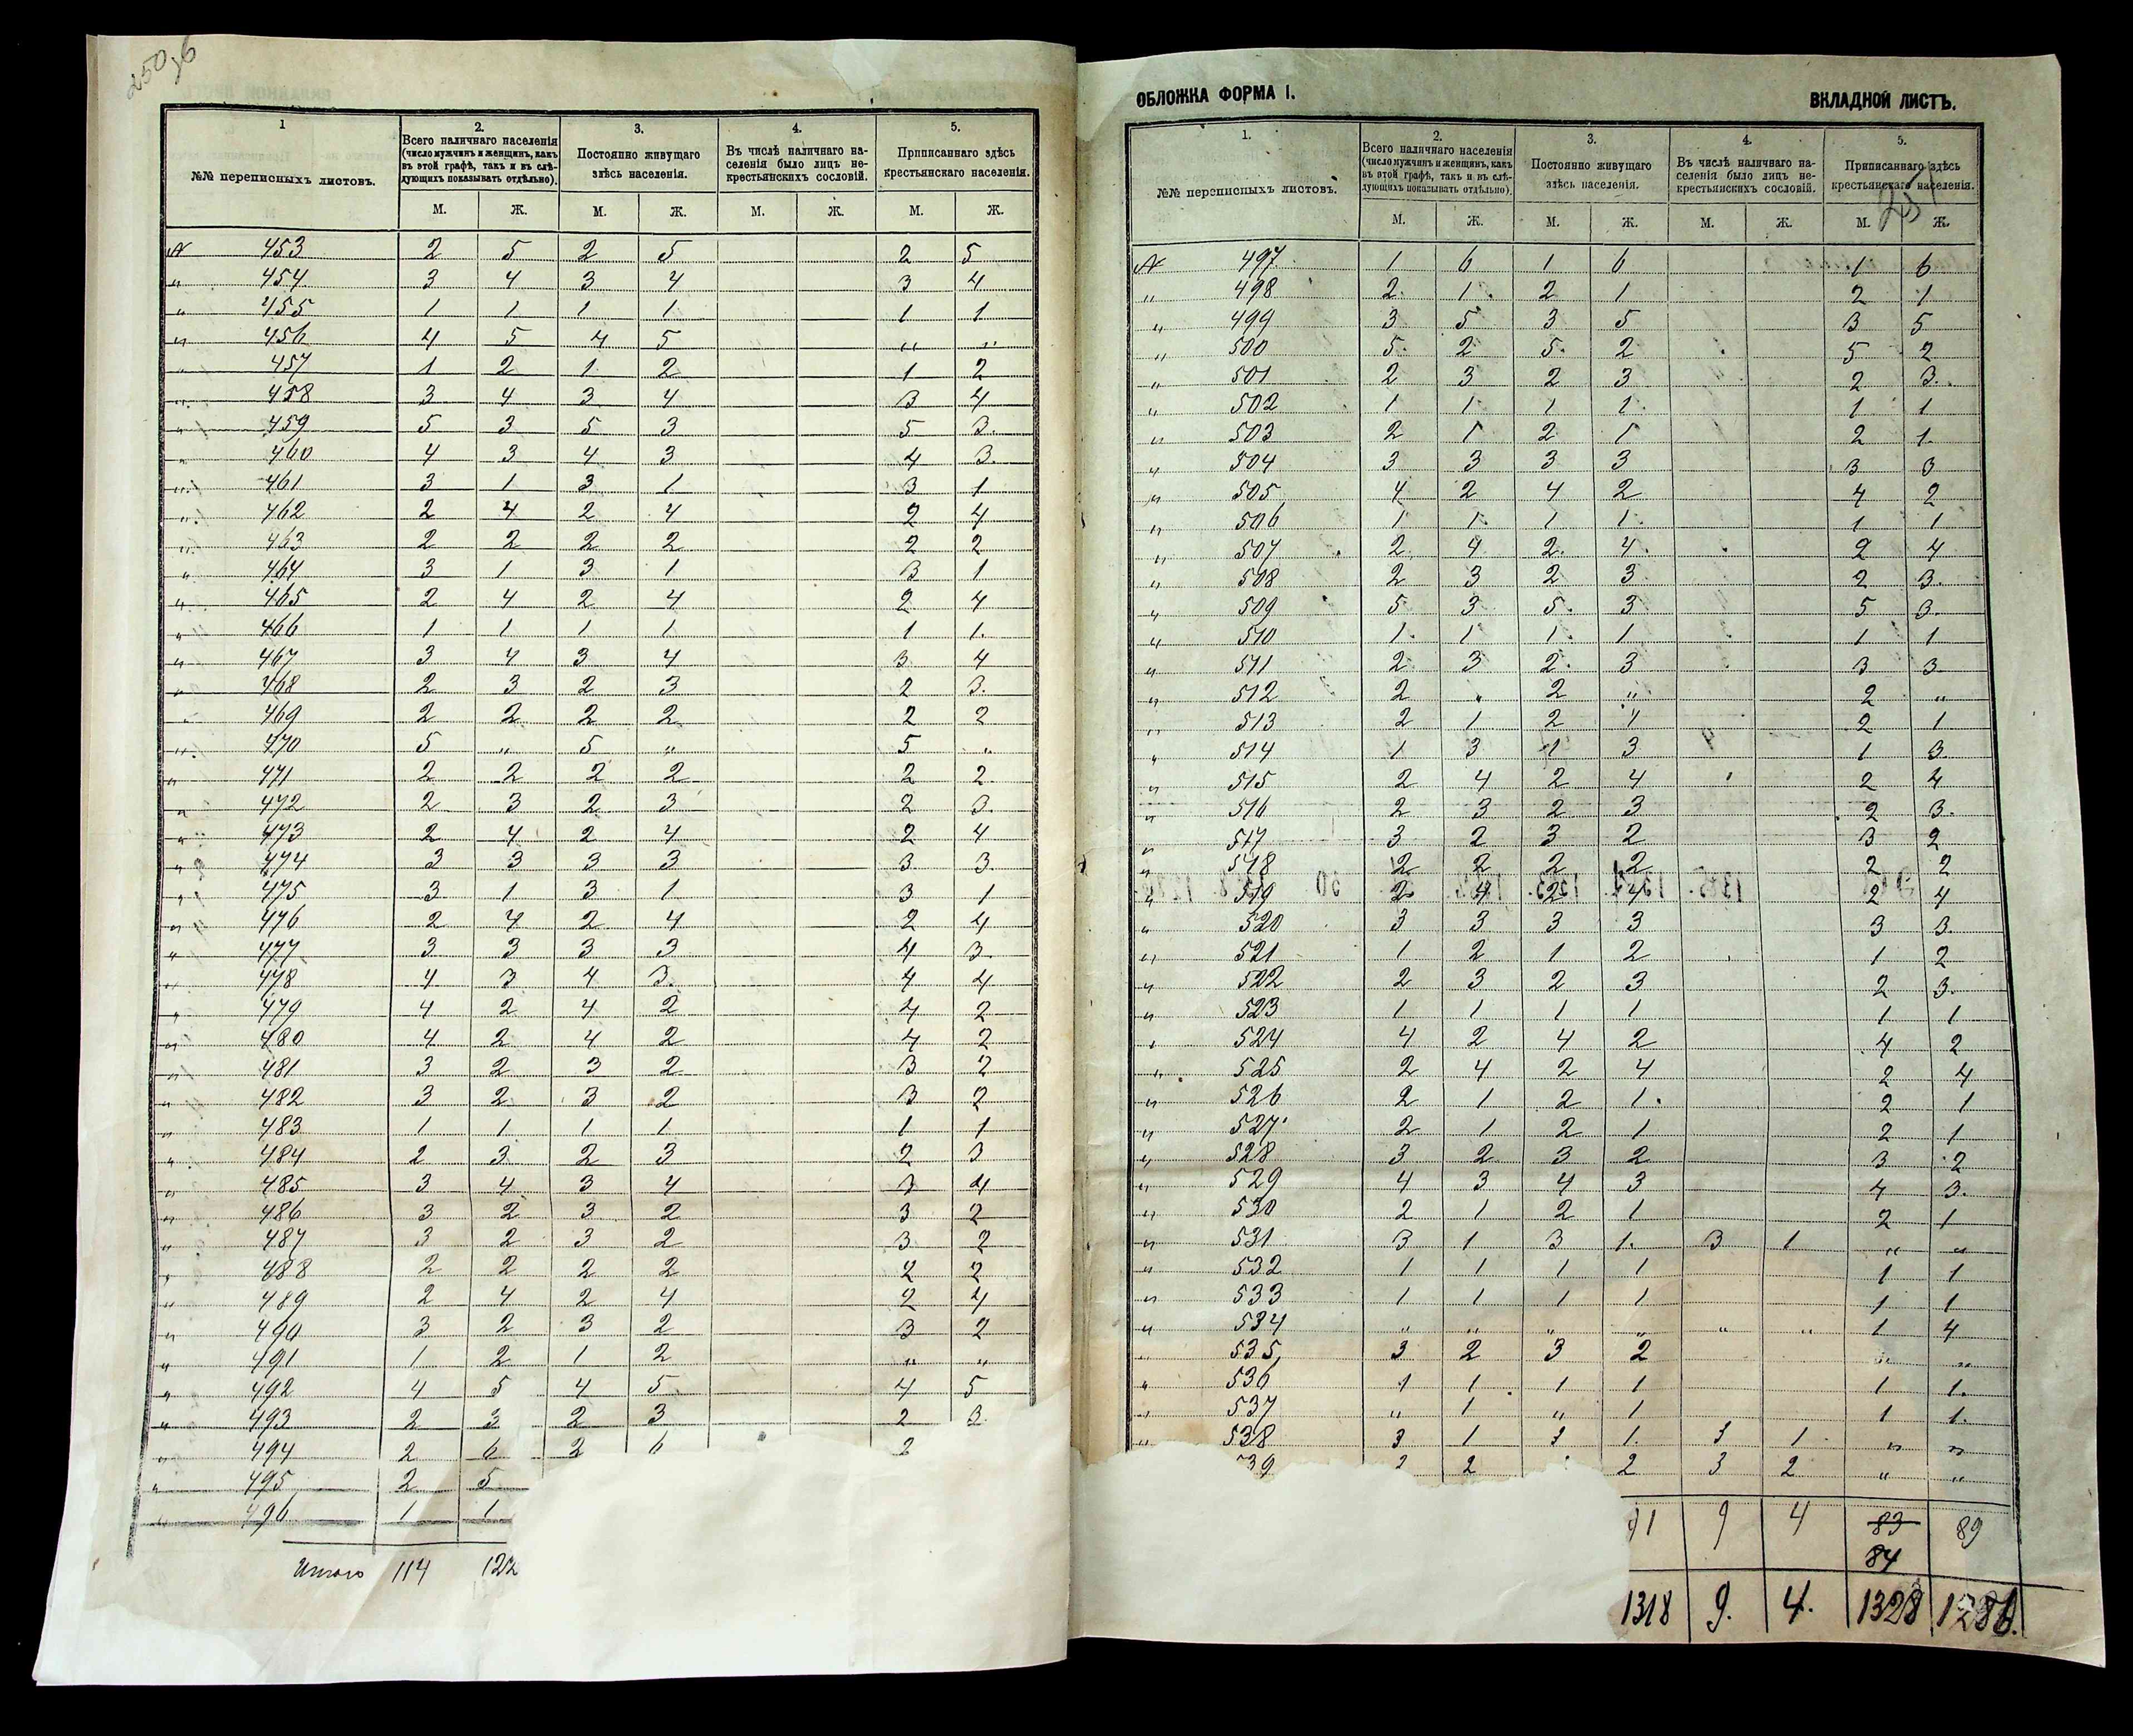 250 об
1 2. 3. 4. 5.
№№ переписныхъ листовъ. Всего наличнаго населенія (число мужчинъ и женщинъ, какъ въ этой графѣ, такъ и въ слѣдующихъ показывать отдѣльно). Постоянно живущаго здѣсь населенія. Въ числѣ наличнаго населенія было лицъ некрестьянскихъ сословій. Приписаннаго здѣсь крестьянскаго населенія.
М. Ж. М. Ж. М. Ж. М. Ж.
№ 453 2 5 2 5 2 5
" 454 3 4 3 4 3 4
" 455 1 1 1 1 1 1
" 456 4 5 4 5 " "
" 457 1 2 1 2 1 2
" 458 3 4 3 4 3 4
" 459 5 3 5 3 5 3.
" 460 4 3 4 3 4 3.
" 461 3 1 3 1 3 1
" 462 2 4 2 4 2 4
" 463 2 2 2 2 2 2
" 464 3 1 3 1 3 1
" 465 2 4 2 4 2 4
" 466 1 1 1 1 1 1.
" 467 3 4 3 4 3 4
" 468 2 3 2 3 2 3.
" 469 2 2 2 2 2 2
" 470 5 " 5 " 5 "
" 471 2 2 2 2 2 2
" 472 2 3 2 3 2 3
" 473 2 4 2 4 2 4
" 474 3 3 3 3 3 3.
" 475 3 1 3 1 3 1
" 476 2 4 2 4 2 4
" 477 3 3 3 3 4 3.
" 478 4 3 4 3. 4 4
" 479 4 2 4 2 4 2
" 480 4 2 4 2 4 2
" 481 3 2 3 2 3 2
" 482 3 2 3 2 3 2
" 483 1 1 1 1 1 1
" 484 2 3 2 3 2 3
" 485 3 4 3 4 3 4
" 486 3 2 3 2 3 2
" 487 3 2 3 2 3 2
" 488 2 2 2 2 2 2
" 489 2 4 2 4 2 4
" 490 3 2 3 2 3 2
" 491 1 2 1 2 " "
" 492 4 5 4 5 4 5
" 493 2 3 2 3 2 3
" 494 2 6 2 6 2
" 495 2 5
" 496 1 1
Итого 114 122
ОБЛОЖКА ФОРМА I. ВКЛАДНОЙ ЛИСТЪ.
1. 2. 3. 4. 5.
№№ переписныхъ листовъ. Всего наличнаго населенія (число мужчинъ и женщинъ, какъ въ этой графѣ, такъ и въ слѣдующихъ показывать отдѣльно). Постоянно живущаго здѣсь населенія. Въ числѣ наличнаго населенія было лицъ некрестьянскихъ сословій. Приписаннаго здѣсь крестьянскаго населенія.
251
М. Ж. М. Ж. М. Ж. М. Ж.
№ 497 1 6 1 6 1 6
" 498 2 1 2 1 2 1
" 499 3 5 3 5 3 5
" 500 5 2 5 2 5 2
" 501 2 3 2 3 2 3.
" 502 1 1 1 1 1 1
" 503 2 1 2 1 2 1.
" 504 3 3 3 3 3 3
" 505 4 2 4 2 4 2
" 506 1 1 1 1 1 1
" 507 2 4 2 4 2 4
" 508 2 3 2 3 2 3.
" 509 5 3 5 3 5 3.
" 510 1 1 1 1 1 1
" 511 2 3 2 3 3 3
" 512 2 " 2 " 2 "
" 513 2 1 2 1 2 1
" 514 1 3 1 3 1 3.
" 515 2 4 2 4 2 4
" 516 2 3 2 3 2 3.
" 517 3 2 3 2 3 2
" 518 2 2 2 2 2 2
" 519 2 4 2 4 2 4
" 520 3 3 3 3 3 3.
" 521 1 2 1 2 1 2
" 522 2 3 2 3 2 3.
" 523 1 1 1 1 1 1
" 524 4 2 4 2 4 2
" 525 2 4 2 4 2 4
" 526 2 1 2 1 2 1
" 527 2 1 2 1 2 1
" 528 3 2 3 2 3 2
" 529 4 3 4 3 4 3.
" 530 2 1 2 1 2 1
" 531 3 1 3 1. 3 1 " "
" 532 1 1 1 1 1 1
" 533 1 1 1 1 1 1
" 534 " " " " " " 1 4
" 535 3 2 3 2 " "
" 536 1 1 1 1 1 1.
" 537 " 1 " 1 1 1.
" 538 3 1 3 1 3 1 " "
39 2 2 3 2 " "
91 9 4 83 89
84
1318 9. 4. 1328 1286.